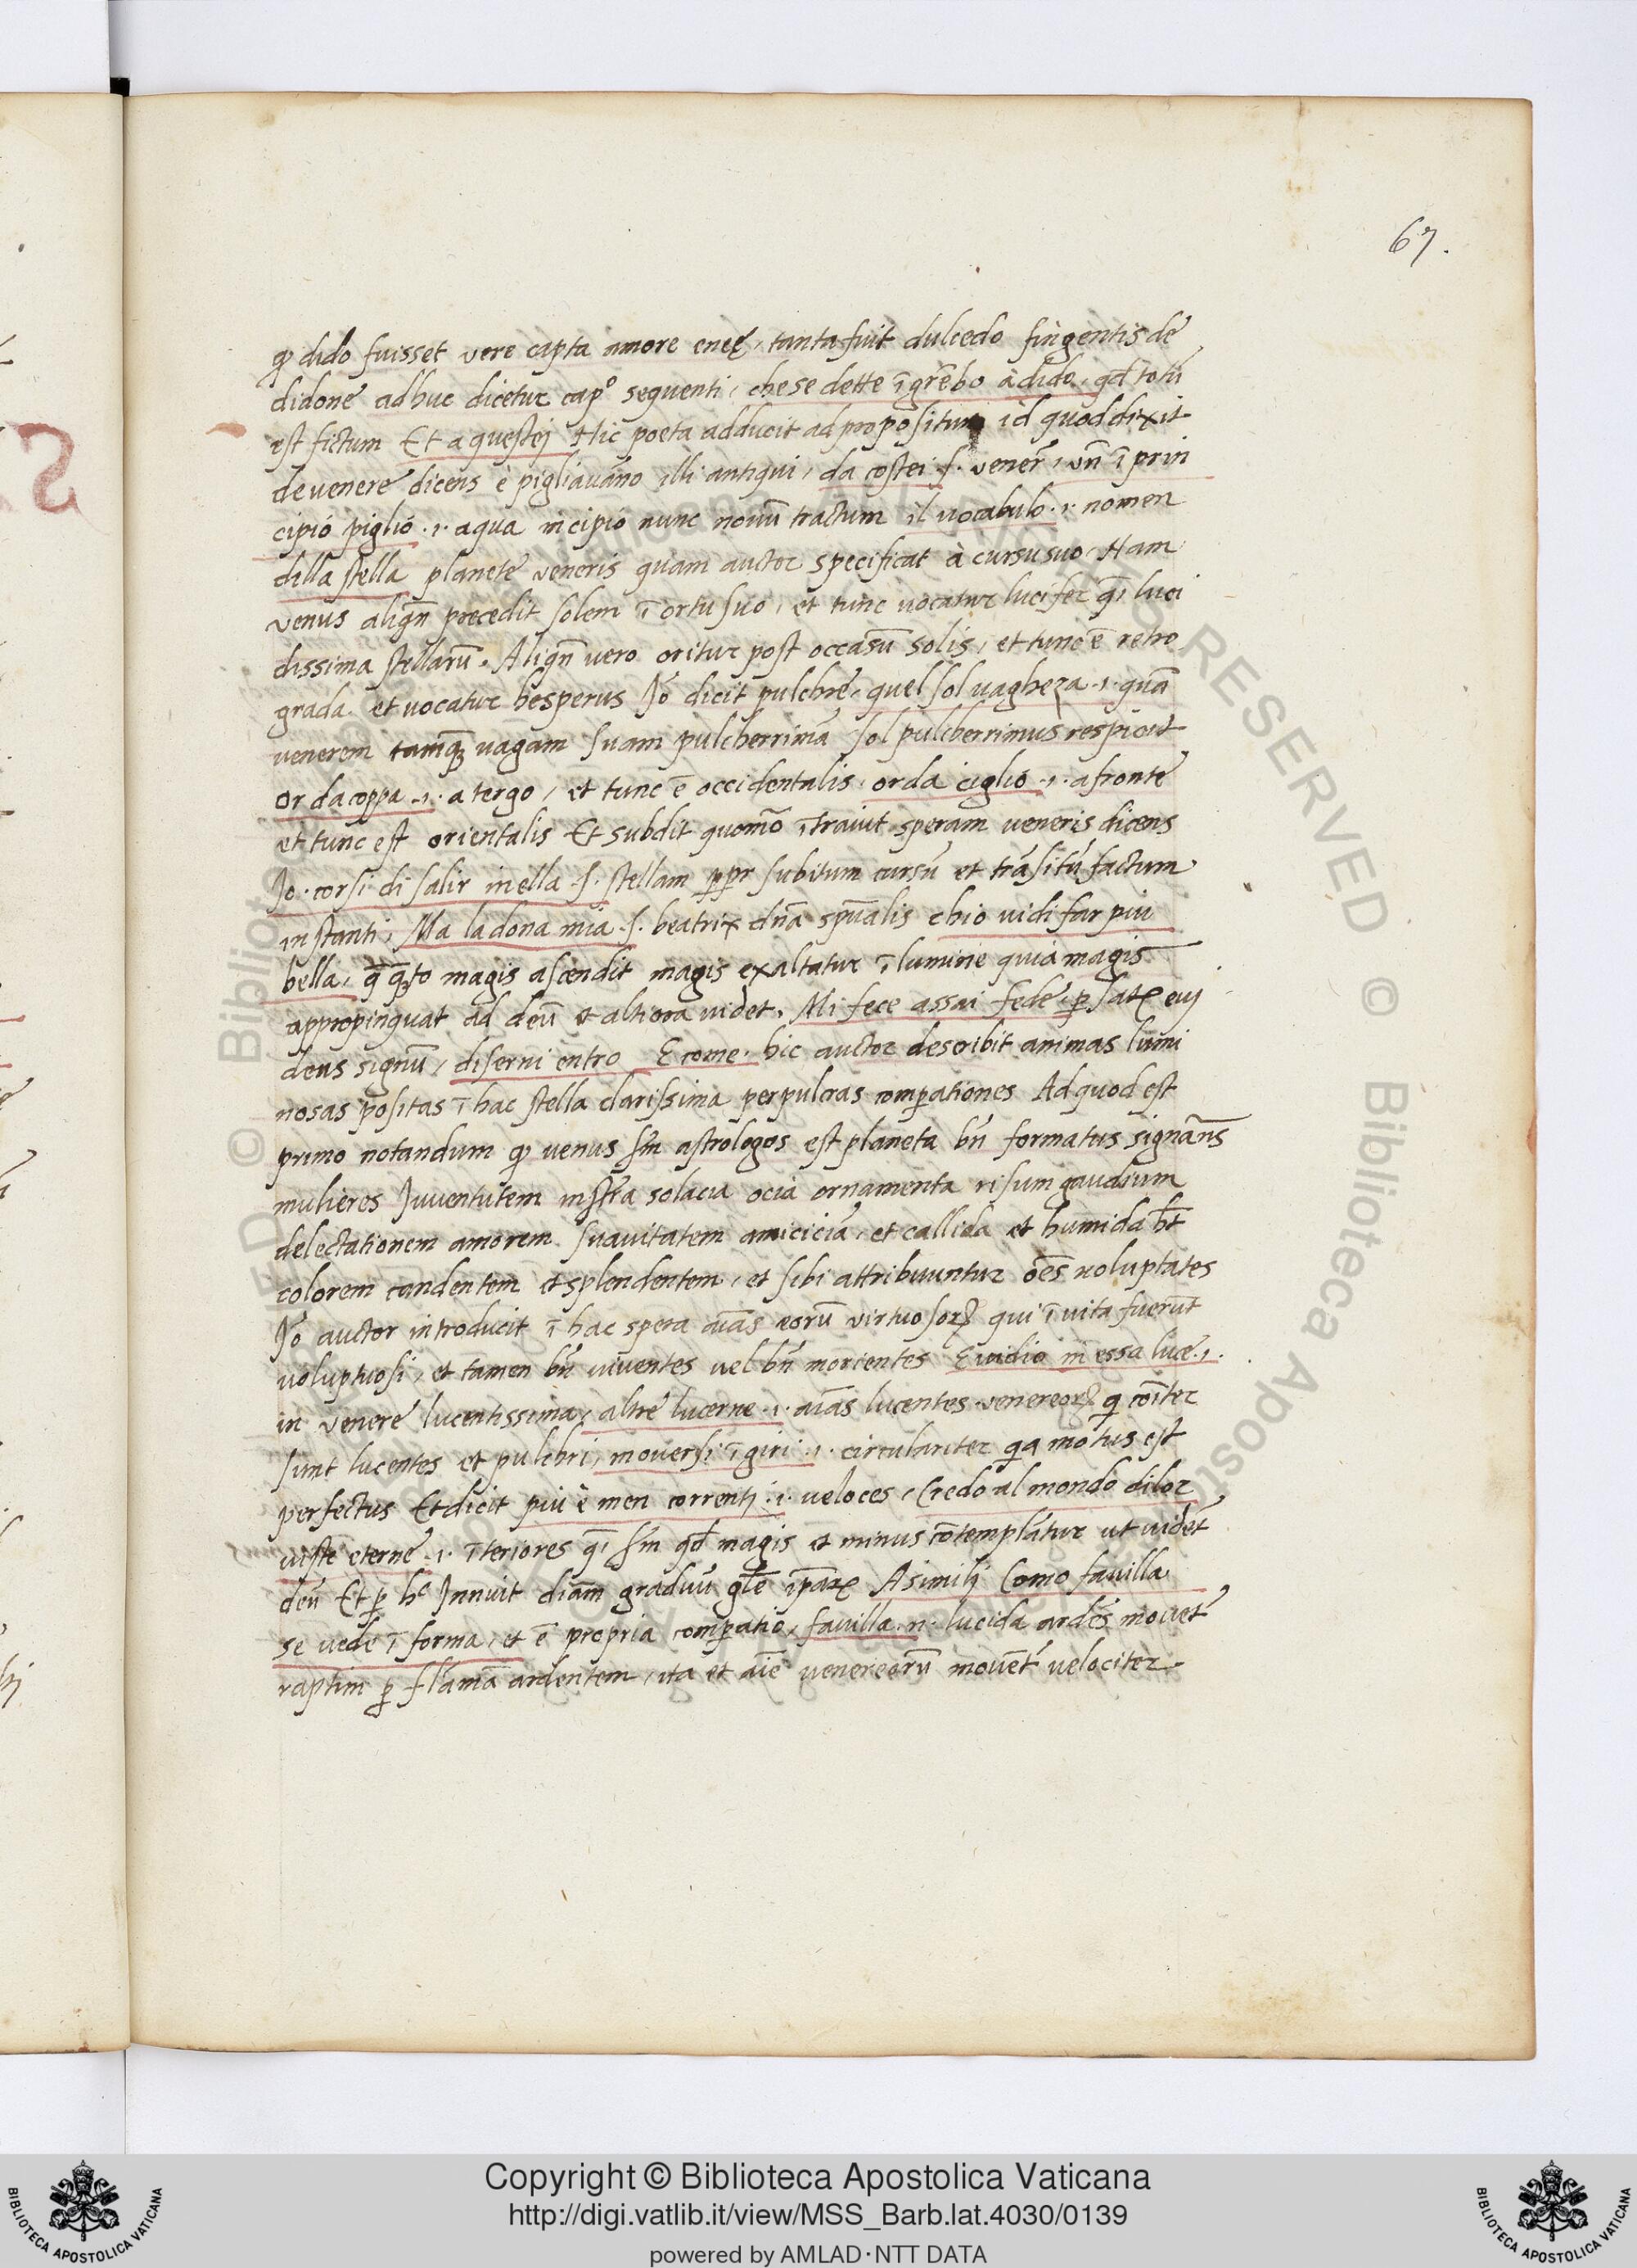 67.
ꝙ dido fuisset vere capta amore eneę, tanta fuit dulcedo fingentis de
didone adhuc dicetur cap.º sequenti, che se dette ĩ grẽbo à dido, qđ totũ
est fictum Et a questej Hic poeta adducit ad propositum id quod dixit
de venere dicens è pigliavano illi antiqui, da costei .s. venerẽ, uñ ĩ prin
cipio piglio .i. a qua incipio nunc novũ tractum il vocabulo .i. nomen
dilla stella planete veneris quam auctor specificat à cursu suo Nam
venus aliqñ precedit solem ĩ ortu suo, et tunc vocatur lucifer q̃i luci
dissima stellarũ. Aliqñ vero oritur post occasũ solis, et tunc ẽ retro
grada et vocatur hesperus Jõ dicit pulchre, quel sol vagheza .i. quã
venerem tamq̃ vagam suam pulcherrimã sol pulcherrimus respicit
or da coppa .i. a tergo, et tunc ẽ occidentalis or da ciglio .i. a fronte
et tunc est orientalis Et subdit quomõ ĩtravit speram veneris dicens
Jo corsi di salir in ella .s. stellam ꝓpr subitum cursũ et trãsitũ factum
instanti, Ma la dona mia .s. beatrix dñã spũalis chio vidi far piu
bella, q̃ q̃to magis ascendit magis exaltatur ĩ lumine quia magis
appropinquat ad deũ et altiora videt. Mi fece assai fede, ꝑ satꝫ evj
dens signũ, diserni entro E come hic auctor describit animas lumi
nosas positas ĩ hac stella clarissima per pulcras comꝑationes Ad quod est
primo notandum ꝙ venus sm̃ astrologos est planeta bñ formatus signãns
mulieres Juventutem solacia ocia ornamenta risum gaudium
delectationem amorem suavitatem amiciciã, et callida et humida ht̃
colorem candentem et splendentem, et sibi attribuuntur oẽs voluptates
Jõ auctor introducit ĩ hac spera aĩas eorũ virtuosoꝝ qui ĩ vita fuerũt
voluptuosi, et tamen bñ viventes vel bñ morientes E vidio in essa luce .i.
in venere lucentissima, altre lucerne .i. aĩas lucentes venereoꝝ q̃ cõiter
sunt lucentes et pulchri, moversi ĩ giri .i. circulariter qa motus est
perfectus Et dicit piu è men correntj .i. veloces, Credo al mondo di lor
viste eterne .i. ĩteriores q̃i sm̃ qđ magis et minus cõtemplãtur ut vidẽt
deũ Et ꝑ hͨ Innuit diãm graduũ glẽ Asimilj Como favilla
se vede ĩ forma, et ẽ propria comꝑatio, favilla .n. lucida ardẽs movet̃
raptim ꝑ flamã ardentem, ita et aĩe venereorũ movẽt̃ velociter
Copyright © Biblioteca Apostolica Vaticana
http://digi.vatlib.it/view/MSS_Barb.lat.4030/0139
powered by AMLAD·NTT DATA
BIBLIOTECA APOSTOLICA VATICANA
BIBLIOTECA APOSTOLICA VATICANA